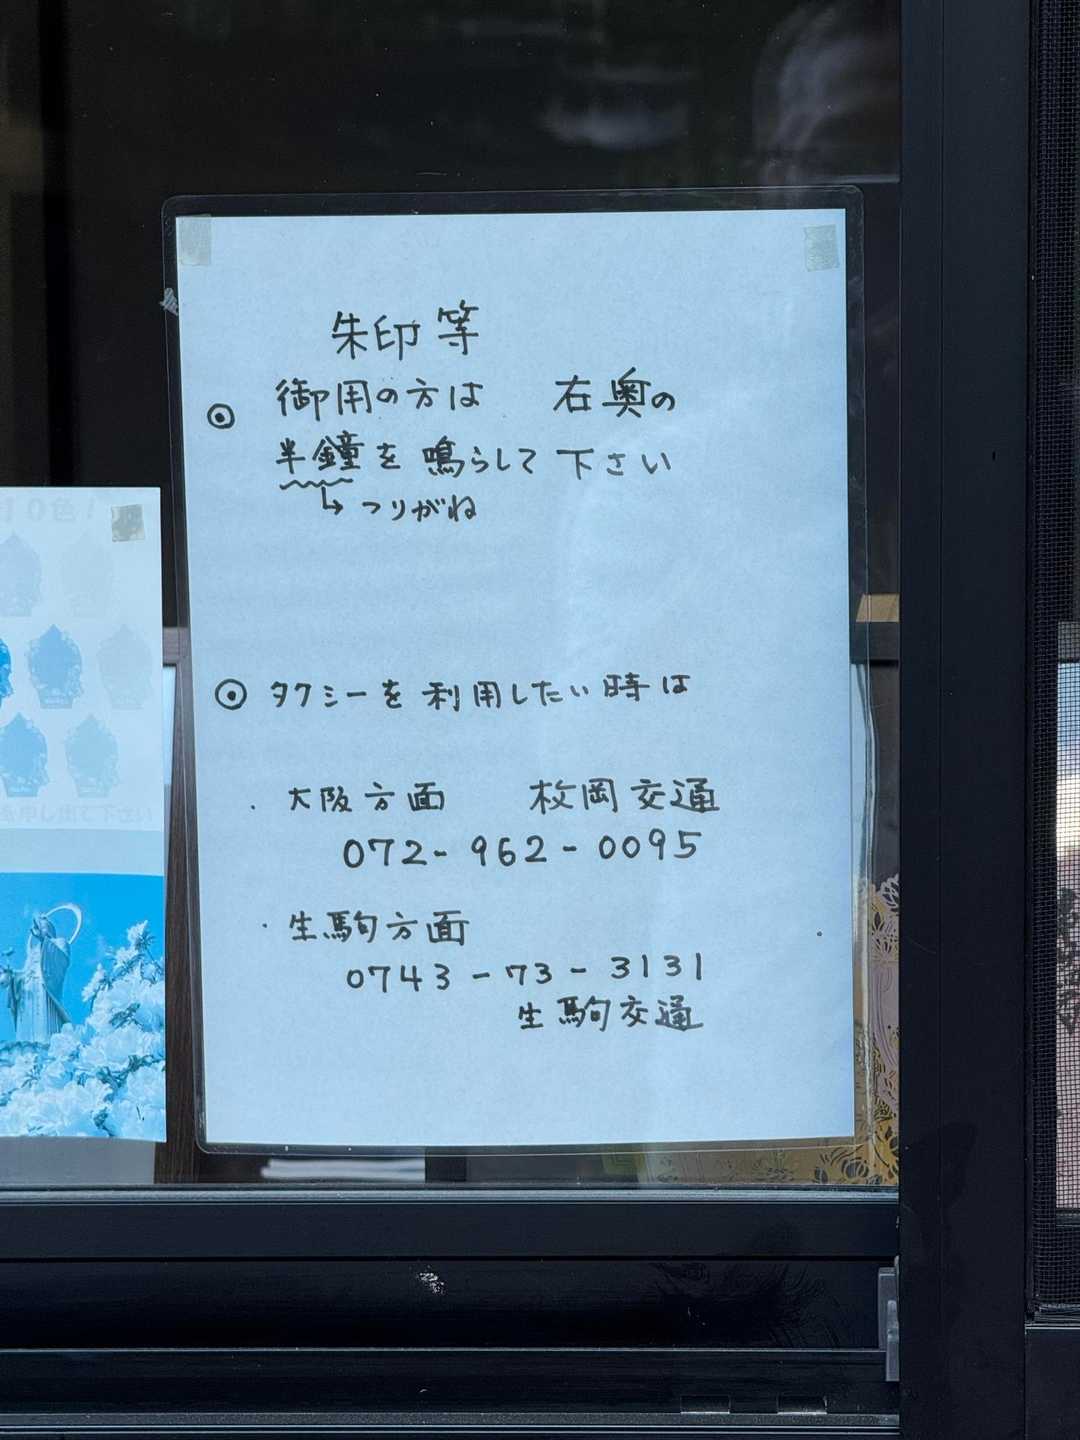 朱印等
◉ 御用の方は 右奥の
半鐘を 鳴らして 下さい
↳ つりがね
◉ タクシーを 利用したい 時は
・大阪方面 枚岡交通
072-962-0095
・生駒方面
0743-73-3131
生駒交通
10色!
申し出て下さい